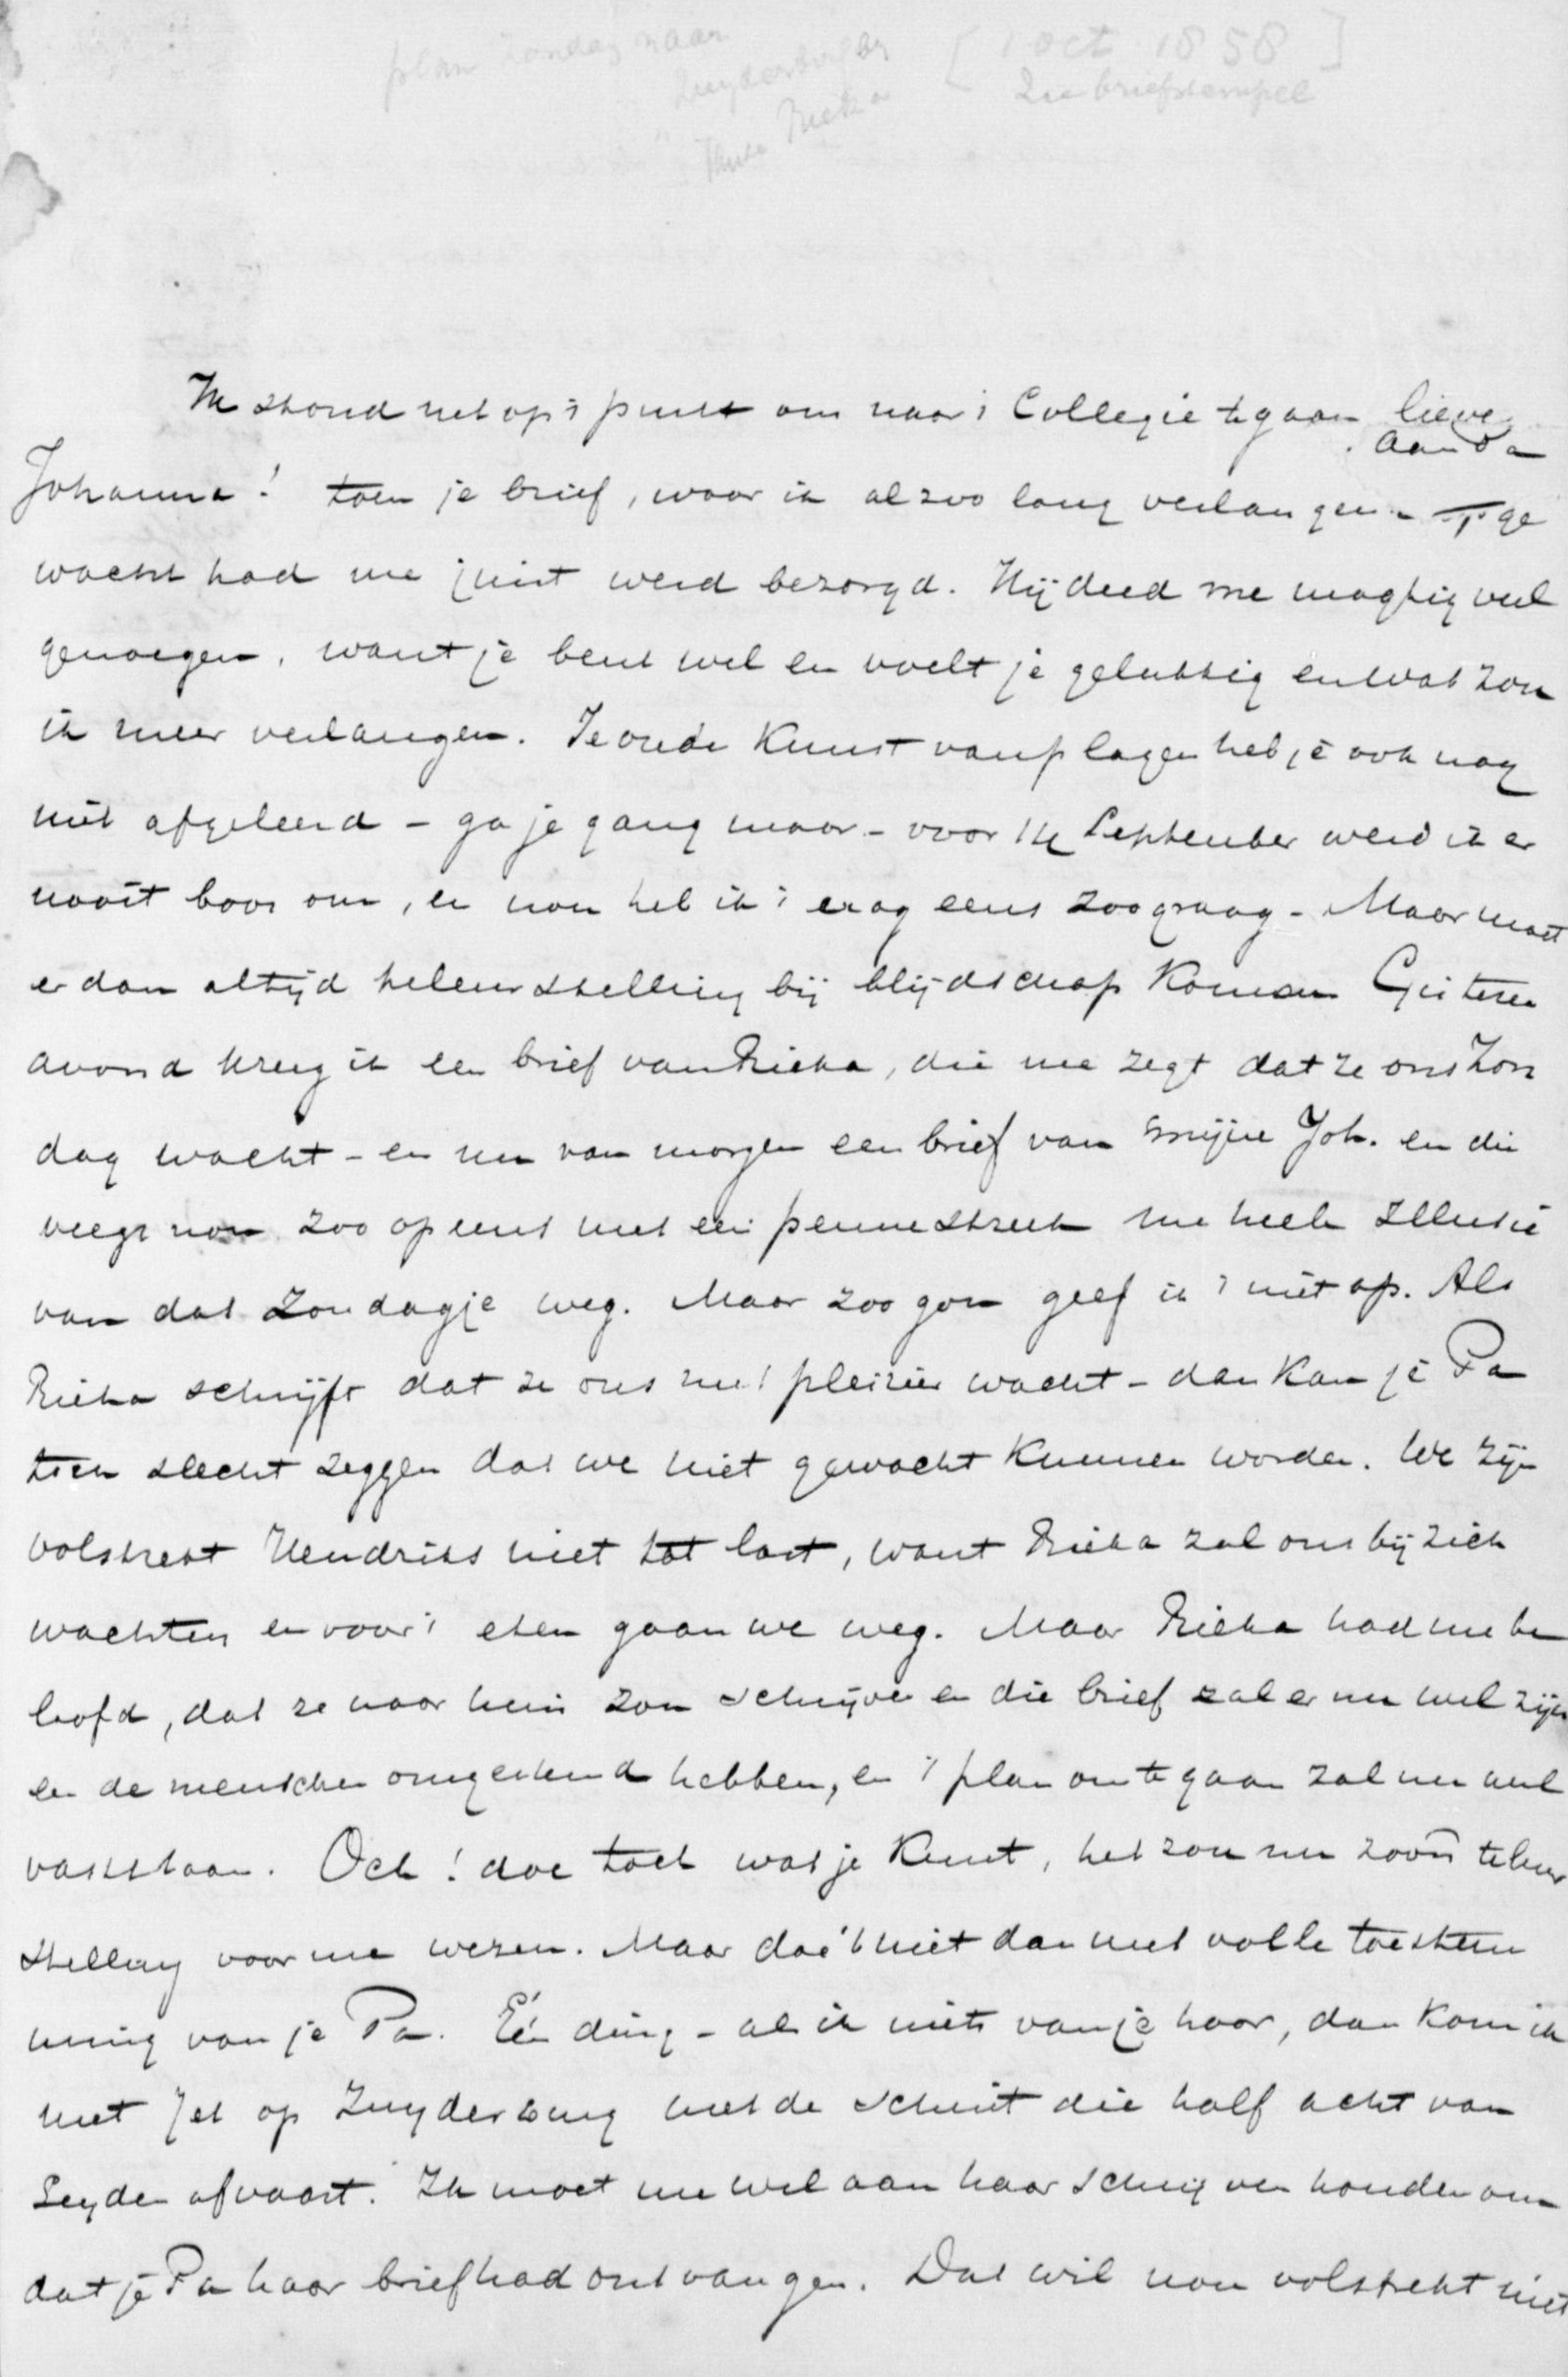 plan zondag naar
Zuyderburg
thuis Rieka
[ 1 oct 1858 ]
Zie briefstempel
Ik stond net op 't punt om naar 't Collegie te gaan lieve
Johanna! toen je brief, waar ik al zoo lang verlangend ge
wacht had me juist werd bezorgd. Hij deed me magtig veel
genoegen, want je bent wel en voelt je gelukkig en wat zou
ik meer verlangen. Je oude Kunst van plagen heb je ook nog
niet afgeleerd – ga je gang maar – voor 14 September werd ik er
nooit boos om, en nou heb ik 't erog eens zoo graag – Maar moet
er dan altijd teleurstelling bij blijdschap Komen Gisteren
avond kreeg ik een brief van Rieka, die me zegt dat ze ons Zon
dag wacht – en nu van morgen een brief van mijne Joh. en die
veegt nou zoo op eens met een pennestreek me heele Illusie
van dat Zondagje weg. Maar zoo gou geef ik 't niet op. Als
Rieka schrijft dat ze ons met pleizier wacht – dan Kan je Pa
toch slecht zeggen dat we niet gewacht Kunnen worden. We zijn
volstrekt Hendriks niet tot last, want Rieka zal ons bij zich
wachten en voor 't eten gaan we weg. Maar Rieka had me be
loofd, dat ze naar huis zou schrijven en die brief zal er nu wel zijn
en de menschen omgestemd hebben, en 't plan om te gaan zal nu wel
vaststaan. Och! doe toch wat je Kunt, het zou nu zoo'n teleur
stelling voor me wezen. Maar doe 't niet dan met volle toestem
ming van je Pa. Eén ding – als ik niets van je hoor, dan Kom ik
met Jet op Zuyderburg met de schuit die half acht van
Leyden afvaart. Ik moet me wel aan haar schrijven houden om
dat je Pa haar brief had ontvangen. Dat wil nou volstrekt niet